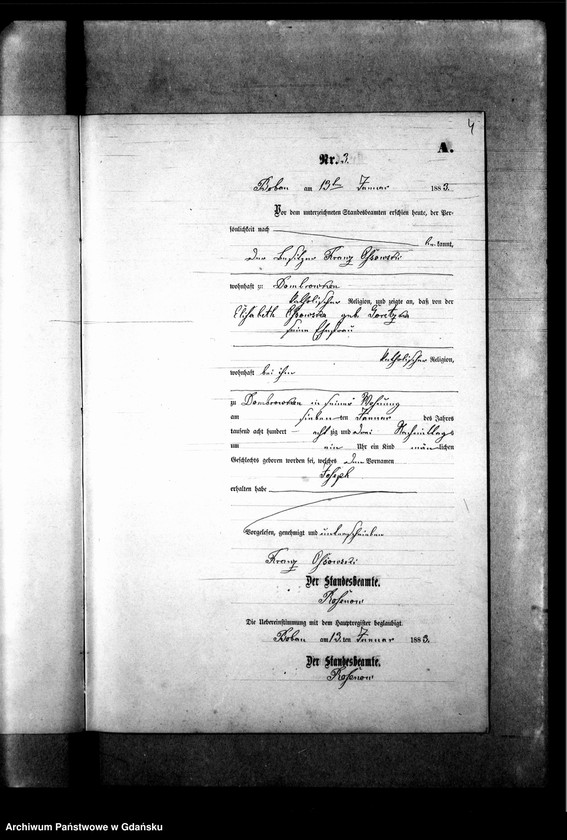 4
A.
Nr. 3.
Bobau am 13ten Januar 1883.
Vor dem unterzeichneten Standesbeamten erschien heute, der Per-
sönlichkeit nach
bekannt,
der Besitzer Franz Ossowski
wohnhaft zu Dombrowken
katholischer Religion, und zeigte an, daß von der
Elisabeth Ossowska geb.
seine Ehefrau
katholischer Religion,
wohnhaft bei ihm
zu Dombrowken in seiner Wohnung
am sieben ten Januar des Jahres
tausend acht hundert acht zig und drei Nachmittags
um ein Uhr ein Kind männ lichen
Geschlechts geboren worden sei, welches den Vornamen
Joseph
erhalten habe
Vorgelesen, genehmigt und unterschrieben
Franz Ossowski
Der Standesbeamte.
Rosenow
Die Uebereinstimmung mit dem Hauptregister beglaubigt.
Bobau am 13. ten Januar 1883.
Der Standesbeamte.
Rosenow
Archiwum Państwowe w Gdańsku